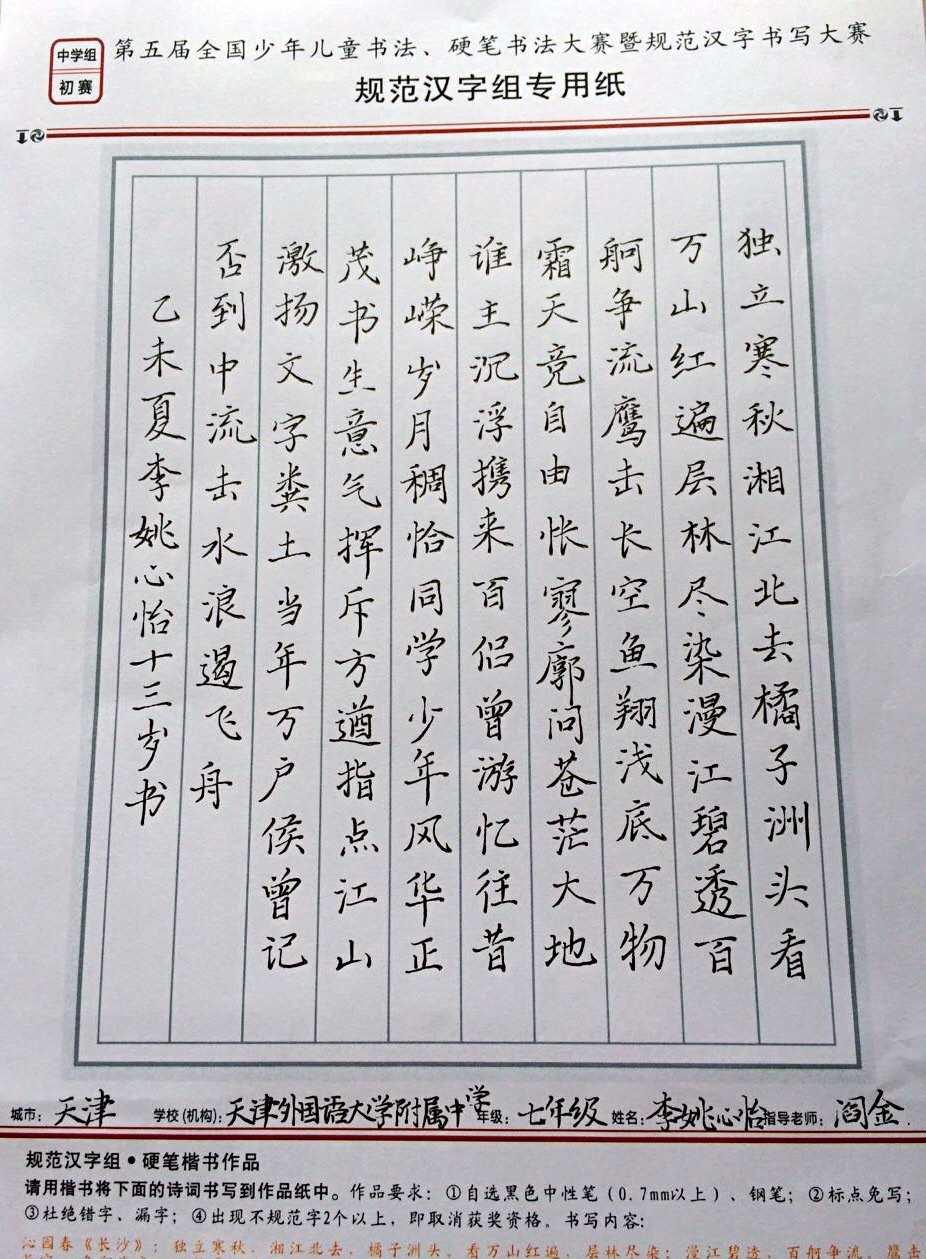 中学组
初赛
第五届全国少年儿童书法、硬笔书法大赛暨规范汉字书写大赛
规范汉字组专用纸
独立寒秋湘江北去橘子洲头看
万山红遍层林尽染漫江碧透百
舸争流鹰击长空鱼翔浅底万物
霜天竞自由怅寥廓问苍茫大地
谁主沉浮携来百侣曾游忆往昔
峥嵘岁月稠恰同学少年风华正
茂书生意气挥斥方遒指点江山
激扬文字粪土当年万户侯曾记
否到中流击水浪遏飞舟
乙未夏李姚心怡十三岁书
城市：天津 学校(机构)：天津外国语大学附属中学 年级：七年级 姓名：李姚心怡 指导老师：阎金.
规范汉字组·硬笔楷书作品
请用楷书将下面的诗词书写到作品纸中。作品要求：①自选黑色中性笔(0.7mm以上)、钢笔；②标点免写；
③杜绝错字、漏字；④出现不规范字2个以上，即取消获奖资格。书写内容：
沁园春《长沙》：独立寒秋，湘江北去，橘子洲头。看万山红遍，层林尽染；漫江碧透，百舸争流。鹰击